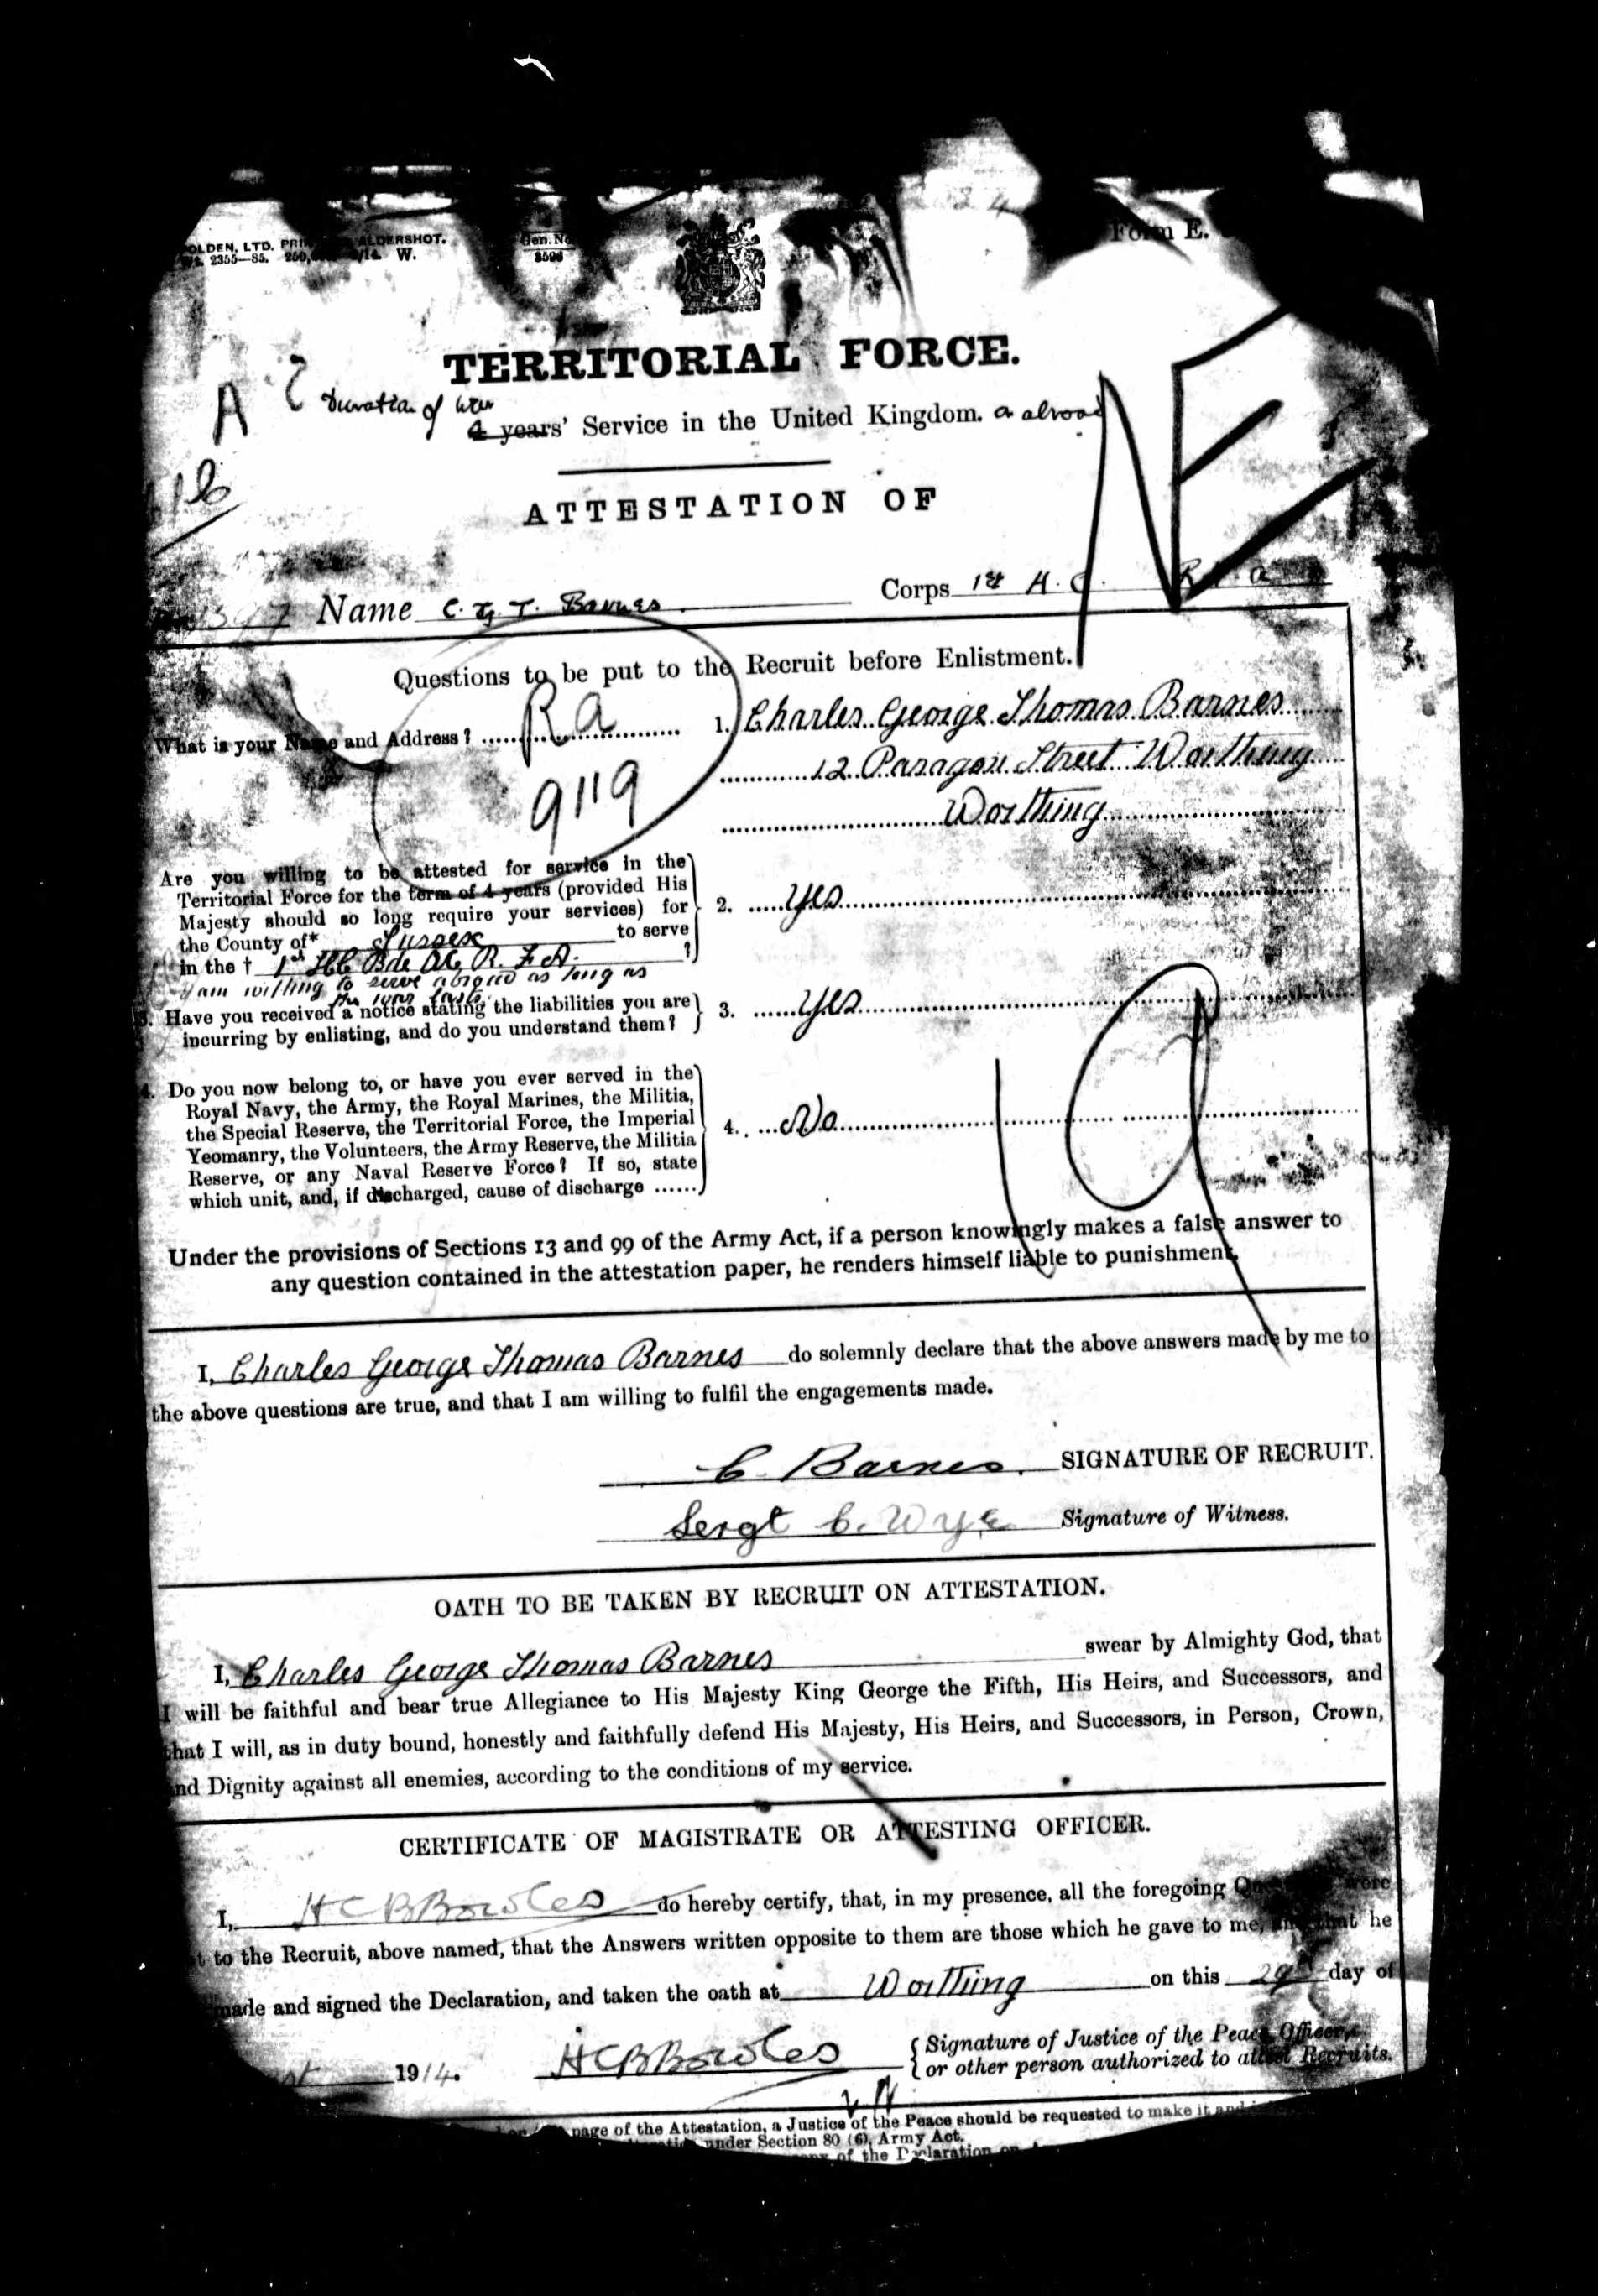 OLDEN, LTD. ALDERSHOT.
2355—85. W.
Gen. No
Form E.
TERRITORIAL FORCE.
A
Duration of war
4 years' Service in the United Kingdom. or abroad
NE
ATTESTATION OF
Name C. G. T. Barnes. Corps 1st H. C.
Questions to be put to the Recruit before Enlistment.
What is your Name and Address? 1. Charles George Thomas Barnes
RA
12 Paragon Street Worthing
9119
Worthing
Are you willing to be attested for service in the
Territorial Force for the term of 4 years (provided His
Majesty should so long require your services) for 2. Yes
the County of* Sussex to serve
in the † 1st H.C. Bde A.C. R.F.A. ?
I am willing to serve abroad as long as
the war lasts.
3. Have you received a notice stating the liabilities you are 3. Yes
incurring by enlisting, and do you understand them?
4. Do you now belong to, or have you ever served in the
Royal Navy, the Army, the Royal Marines, the Militia,
the Special Reserve, the Territorial Force, the Imperial 4. No
Yeomanry, the Volunteers, the Army Reserve, the Militia
Reserve, or any Naval Reserve Force? If so, state
which unit, and, if discharged, cause of discharge ......
Under the provisions of Sections 13 and 99 of the Army Act, if a person knowingly makes a false answer to
any question contained in the attestation paper, he renders himself liable to punishment.
I, Charles George Thomas Barnes do solemnly declare that the above answers made by me to
the above questions are true, and that I am willing to fulfil the engagements made.
C Barnes. SIGNATURE OF RECRUIT.
Sergt C. Wye Signature of Witness.
OATH TO BE TAKEN BY RECRUIT ON ATTESTATION.
I, Charles George Thomas Barnes swear by Almighty God, that
I will be faithful and bear true Allegiance to His Majesty King George the Fifth, His Heirs, and Successors, and
that I will, as in duty bound, honestly and faithfully defend His Majesty, His Heirs, and Successors, in Person, Crown,
and Dignity against all enemies, according to the conditions of my service.
CERTIFICATE OF MAGISTRATE OR ATTESTING OFFICER.
I, HCBBowles do hereby certify, that, in my presence, all the foregoing Questions were
to the Recruit, above named, that the Answers written opposite to them are those which he gave to me, and that he
made and signed the Declaration, and taken the oath at Worthing on this 29th day of
1914. HCBBowles Signature of Justice of the Peace, Officer,
or other person authorized to attest Recruits.
page of the Attestation, a Justice of the Peace should be requested to make it and
under Section 80 (6), Army Act.
of the Declaration on